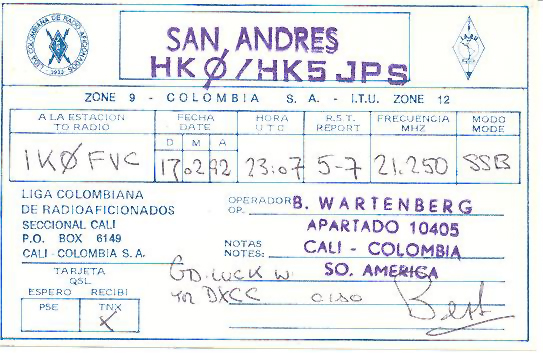 LIGA COLOMBIANA DE RADIO AFICIONADOS
1933
SAN ANDRES
HKØ/HK5JPS
ZONE 9 - COLOMBIA S. A. - I.T.U. ZONE 12
A LA ESTACION
TO RADIO
FECHA
DATE
HORA
UTC
R.S.T.
REPORT
FRECUENCIA
MHZ
MODO
MODE
D M A
IKØFVC
17.02.92
23:07
5-7
21.250
SSB
LIGA COLOMBIANA
DE RADIOAFICIONADOS
SECCIONAL CALI
P.O. BOX 6149
CALI - COLOMBIA S. A.
OPERADOR
OP.
B. WARTENBERG
APARTADO 10405
NOTAS
NOTES:
CALI - COLOMBIA
SO. AMERICA
TARJETA
QSL
ESPERO RECIBI
PSE TNX
X
GD. LUCK W
DXCC
CIAO
Bert